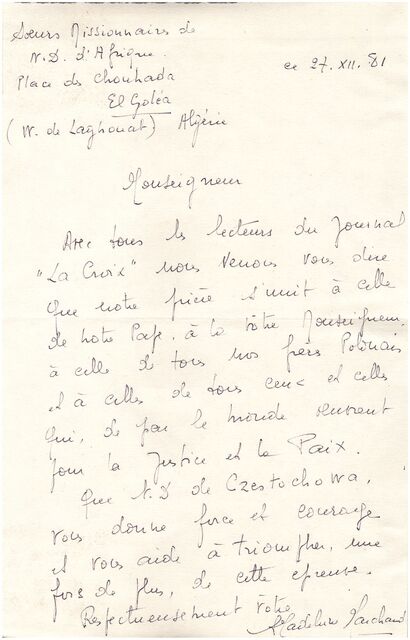 Sœurs Missionnaires de
N.D. d'Afrique.
Place des Chouhada
El Goléa
(W. de Laghouat) Algérie
ce 27.XII.81
Monseigneur
Avec tous les lecteurs du journal
"La Croix" nous venons vous dire
que notre prière s'unit à celle
de notre Pape, à la vôtre Monseigneur,
à celle de tous nos frères Polonais
et à celles de tous ceux et celles
qui, de par le monde œuvrent
pour la Justice et la Paix.
Que N.D de Czestochowa,
vous donne force et courage
et vous aide à triompher, une
fois de plus, de cette épreuve.
Respectueusement vôtre
Madeleine Marchand